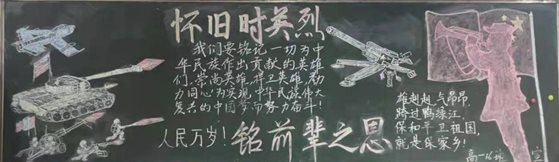 怀旧时英烈
我们要铭记一切为中
华民族作出贡献的英雄
们,崇尚英雄,捍卫英雄,勠
力同心为实现中华民族伟大
复兴的中国梦而努力奋斗!
人民万岁!
铭前辈之恩
雄赳赳,气昂昂,
跨过鸭绿江,
保和平卫祖国,
就是保家乡!
高一16班 宣